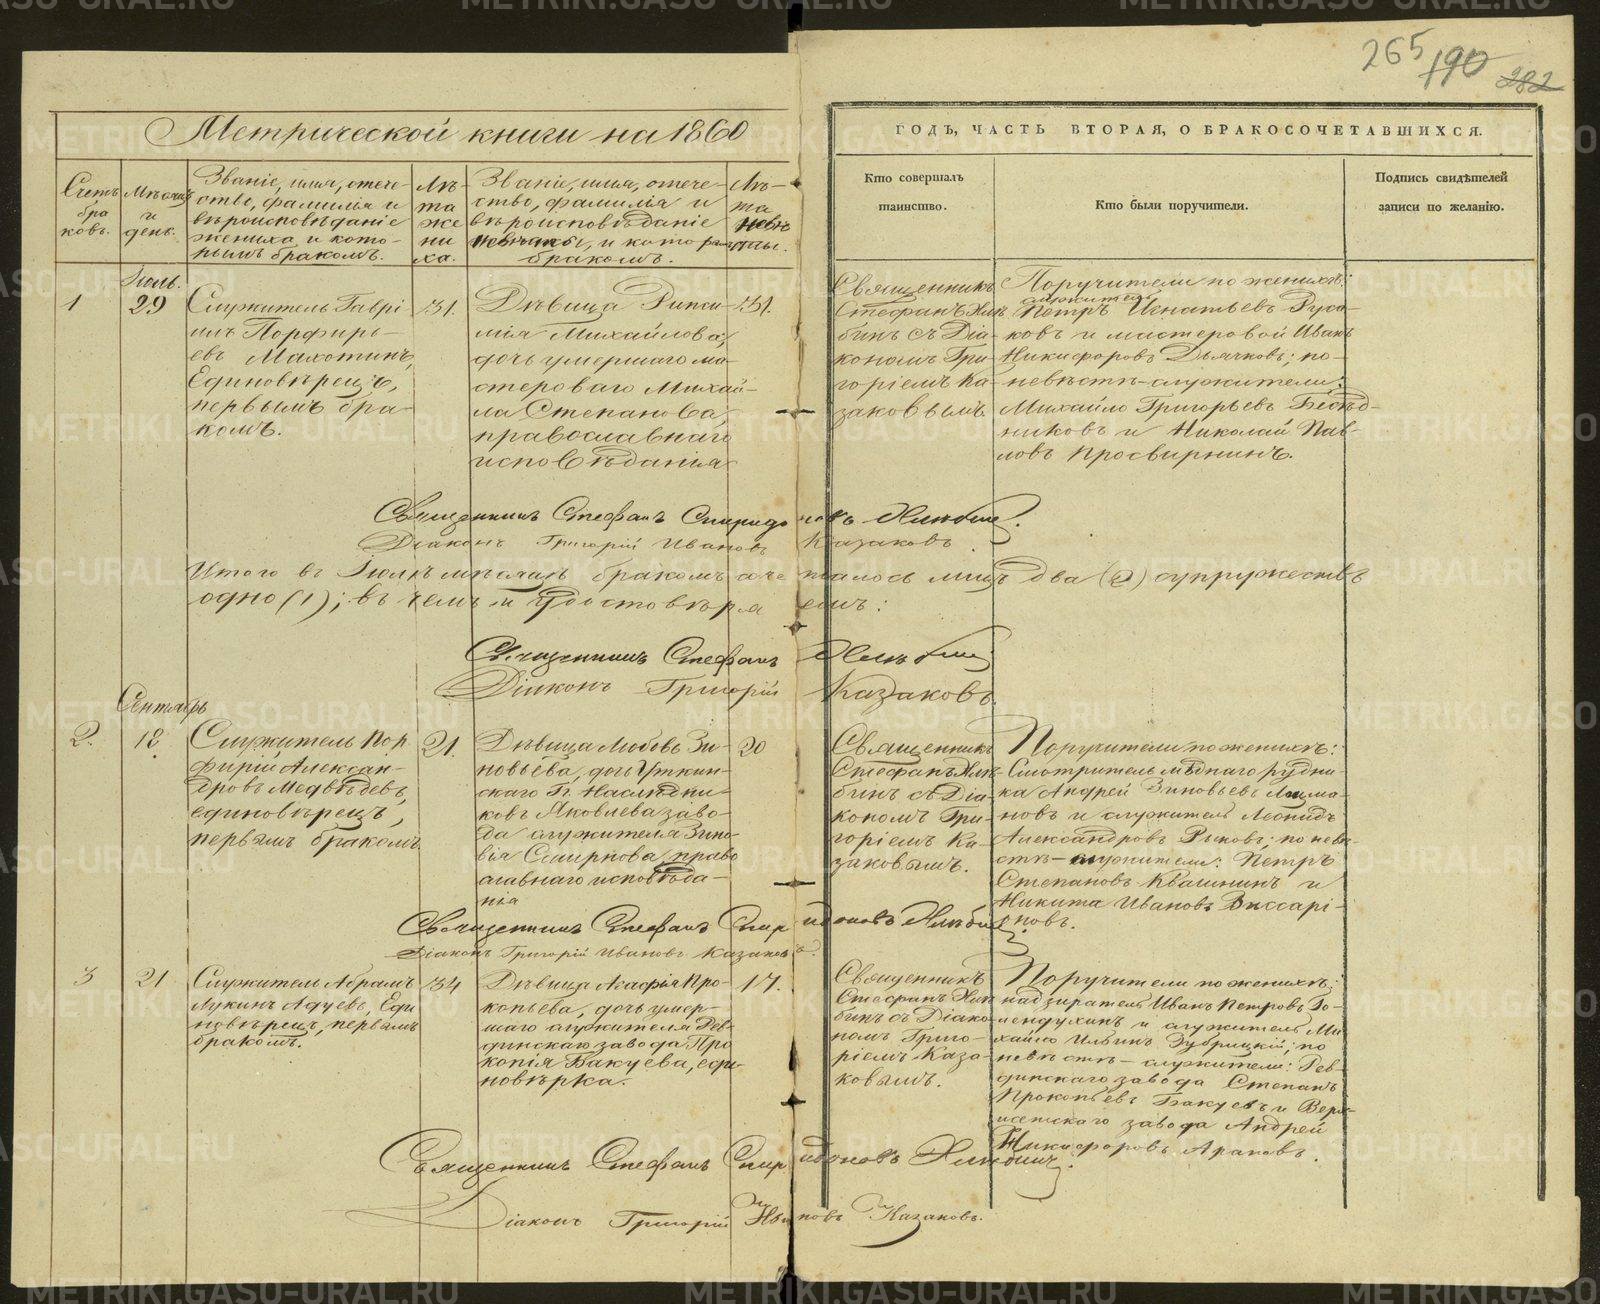 265 190 282
Метрической книги на 1860
ГОДЪ, ЧАСТЬ ВТОРАЯ, О БРАКОСОЧЕТАВШИХСЯ.
Счетъ
бра
ковъ.
Мѣсяцъ
и
день.
Званіе, имя, отече-
ство, фамилія и
вѣроисповѣданіе
жениха и кото-
рымъ бракомъ.
Лѣ-
та
же
ни
ха.
Званіе, имя, отече-
ство, фамилія и
вѣроисповѣданіе
невѣсты, и которымъ
бракомъ.
Лѣ-
та
невѣ
сты.
Кто совершалъ
таинство.
Кто были поручители.
Подпись свидѣтелей
записи по желанію.
1
Іюль.
29
Служитель Гаврі
илъ Порфирь-
евъ Махотинъ,
Единовѣрецъ,
первымъ бра-
комъ.
31.
Дѣвица Рипси-
мія Михайлова,
дочь умершаго ма-
стероваго Михай-
ла Степанова,
православнаго
исповѣданія
31.
Священникъ
Стефанъ Хлѣ-
бинъ съ Діа-
кономъ Гри-
горіемъ Ка-
заковымъ.
Поручители по женихѣ:
служители
Петръ Игнатьевъ Руса-
ковъ и мастеровой Иванъ
Никифоровъ Дьячковъ; по-
невѣстѣ-служители:
Михайло Григорьевъ Бесѣд-
никовъ и Николай Пав-
ловъ Просвирнинъ.
Священникъ Стефанъ Спиридоновъ Хлѣбинъ.
Діаконъ Григорій Ивановъ Казаковъ.
Итого въ Іюлѣ мѣсяцѣ бракомъ сочеталось лицъ два (2) супружествъ
одно (1); въ чемъ и удостовѣряемъ:
Священникъ Стефанъ Хлѣбинъ
Діаконъ Григорій Казаковъ.
Сентябрь
2.
18.
Служитель Пор
фирій Алексан-
дровъ Медвѣдевъ,
единовѣрецъ,
первымъ бракомъ
21.
Дѣвица Любовь Зи-
новьева, дочь Уткин-
скаго Гг. Наслѣдни-
ковъ Яковлева заво-
да служителя Зино-
вія Смирнова, право
славнаго исповѣда-
нія
20
Священникъ
Стефанъ Хлѣ-
бинъ съ Діа-
кономъ Гри-
горіемъ Ка-
заковымъ.
Поручители по женихѣ:
Смотритель мѣднаго рудни-
ка Андрей Зиновьевъ
новъ и служитель Леонидъ
Александровъ Рыковъ; по невѣ-
стѣ-служители: Петръ
Степановъ Квашнинъ и
Никита Ивановъ Виссарі-
оновъ.
Священникъ Стефанъ Спиридоновъ Хлѣбинъ
Діаконъ Григорій Ивановъ Казаковъ.
3
21
Служитель Абрамъ
Лукинъ Адуевъ, Еди
новѣрецъ, первымъ
бракомъ.
34
Дѣвица Агафья Про-
копьева, дочь умер-
шаго служителя Рев-
динскаго завода Про
копія Бакуева, еди-
новѣрка.
17.
Священникъ
Стефанъ Хлѣ-
бинъ съ Діако-
номъ Григо-
ріемъ Каза-
ковымъ.
Поручители по женихѣ:
надзиратель Иванъ Петровъ Го-
лендухинъ и служитель Ми-
хайло Ильинъ Зубрицкій; по
невѣстѣ-служители: Рев-
динскаго завода Степанъ
Прокопьевъ Бакуевъ и Верх-
исетскаго завода Андрей
Никифоровъ Араповъ.
Священникъ Стефанъ Спиридоновъ Хлѣбинъ.
Діаконъ Григорій Ивановъ Казаковъ.
METRIKI.GASO-URAL.RU